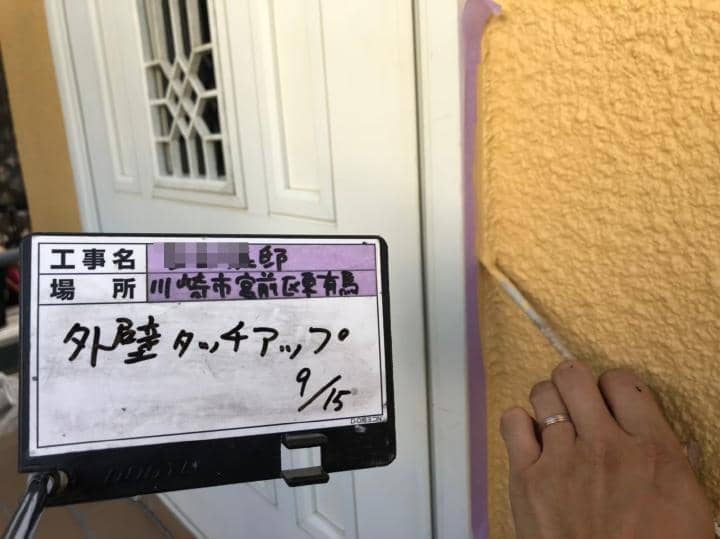 工事名 邸
場所 川崎市宮前区東有馬
外壁タッチアップ
9/15